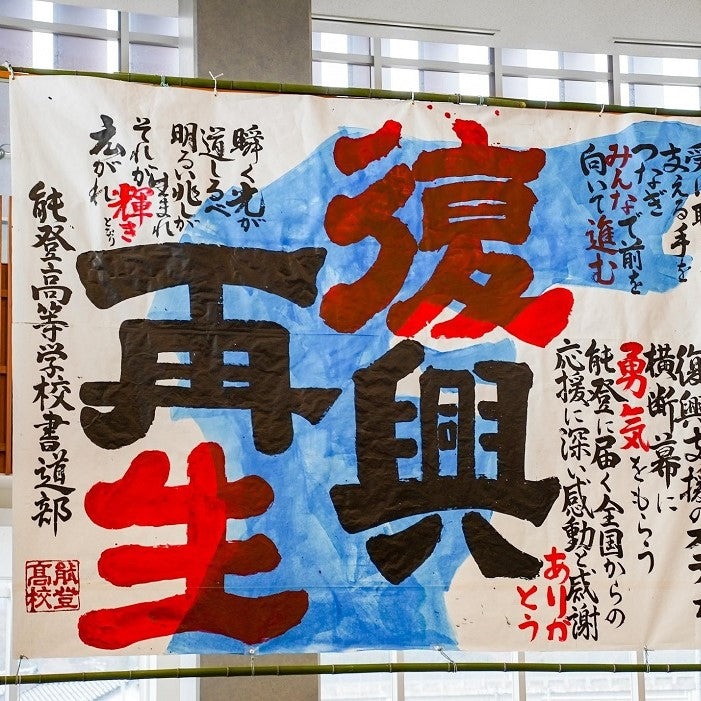 支える手を
つなぎ
みんなで前を
向いて進む
復興支援の
横断幕に
勇気をもらう
能登に届く全国からの
応援に深い感動と感謝
ありが
とう
復興
再生
瞬く光が
道しるべ
明るい兆しが
生まれ
それが輝き
となり
広がれ
能登高等学校書道部
能登
高校